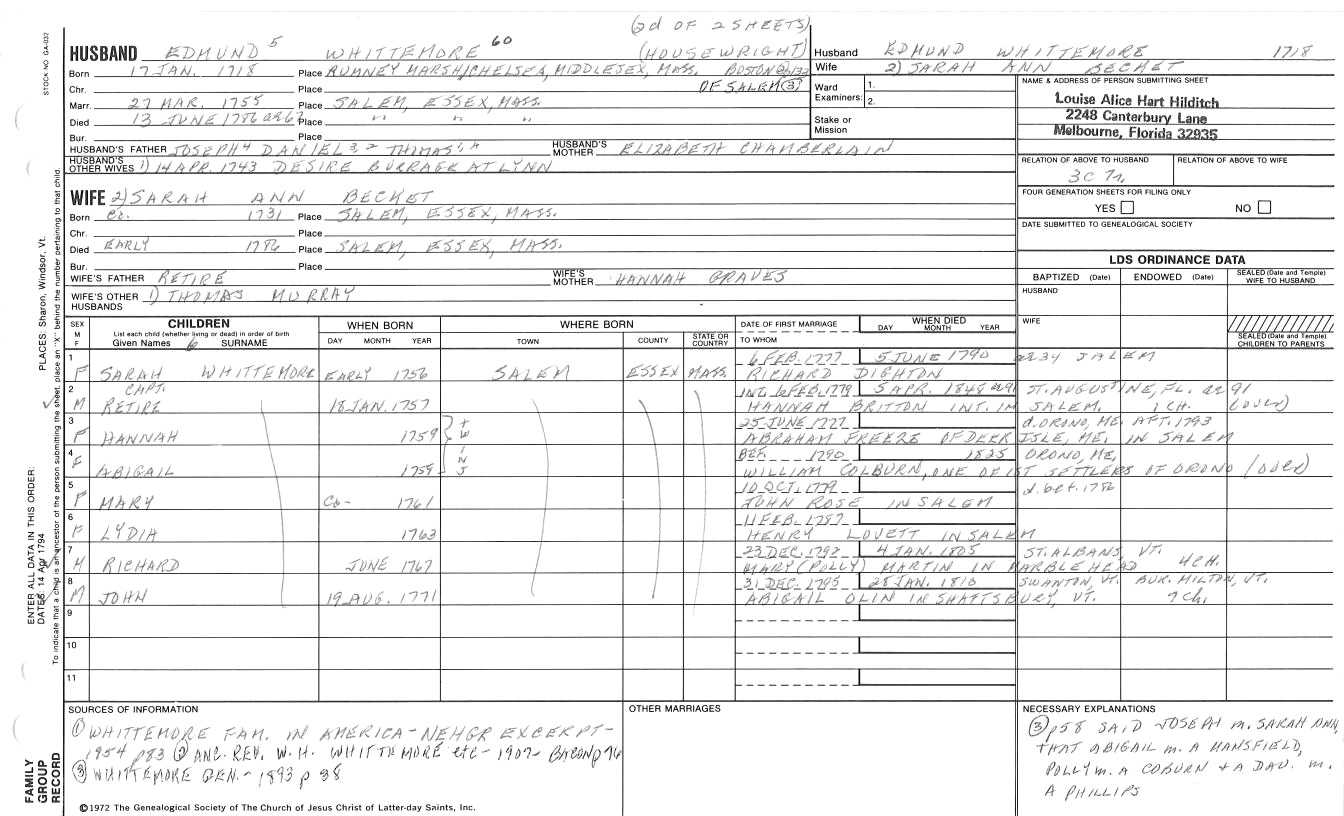 (2d OF 2 SHEETS)
HUSBAND EDMUND 5 WHITTEMORE 60 (HOUSEWRIGHT)
Born 17 JAN. 1718 Place RUMNEY MARSH, CHELSEA, MIDDLESEX, MASS. BOSTON
Chr. Place OF SALEM (3)
Marr. 27 MAR. 1755 Place SALEM, ESSEX, MASS.
Died 13 JUNE 1786 ae 67 Place " " "
Bur. Place
HUSBAND'S FATHER JOSEPH 4 DANIEL 3, 2 THOMAS 1, A HUSBAND'S MOTHER ELIZABETH CHAMBERLAIN
HUSBAND'S OTHER WIVES 1) 14 APR. 1743 DESIRE BURRAGE AT LYNN
WIFE 2) SARAH ANN BECKET
Born Ca. 1731 Place SALEM, ESSEX, MASS.
Chr. Place
Died EARLY 1786 Place SALEM, ESSEX, MASS.
Bur. Place
WIFE'S FATHER RETIRE WIFE'S MOTHER HANNAH GRAVES
WIFE'S OTHER HUSBANDS 1) THOMAS MURRAY
Husband EDMUND WHITTEMORE 1718
Wife 2) SARAH ANN BECKET
Ward Examiners: 1.
2.
Stake or Mission
NAME & ADDRESS OF PERSON SUBMITTING SHEET
Louise Alice Hart Hilditch
2248 Canterbury Lane
Melbourne, Florida 32935
RELATION OF ABOVE TO HUSBAND RELATION OF ABOVE TO WIFE
3C 7r.
FOUR GENERATION SHEETS FOR FILING ONLY
YES NO
DATE SUBMITTED TO GENEALOGICAL SOCIETY
LDS ORDINANCE DATA
BAPTIZED (Date) ENDOWED (Date) SEALED (Date and Temple) WIFE TO HUSBAND
HUSBAND
WIFE
SEALED (Date and Temple) CHILDREN TO PARENTS
SEX M F CHILDREN List each child (whether living or dead) in order of birth Given Names SURNAME WHEN BORN DAY MONTH YEAR WHERE BORN TOWN COUNTY STATE OR COUNTRY DATE OF FIRST MARRIAGE TO WHOM WHEN DIED DAY MONTH YEAR
1 F SARAH WHITTEMORE EARLY 1756 SALEM ESSEX MASS. 6 FEB. 1777 5 JUNE 1790 ae 34 SALEM
RICHARD DIGHTON
2 M CAPT. RETIRE 18 JAN. 1757 INT. 6 FEB. 1779 5 APR. 1848 ae 91 ST. AUGUSTINE, FL. ae 91
HANNAH BRITTON INT. IN SALEM. 1 CH. (OVER)
3 F HANNAH 1759 TWINS 25 JUNE 1777 d. ORONO, ME. AFT. 1793
ABRAHAM FREEZE OF DEER ISLE, ME. IN SALEM
4 F ABIGAIL 1759 BEF. 1790 1825 ORONO, ME.
WILLIAM COLBURN, ONE OF 1ST SETTLERS OF ORONO (OVER)
5 F MARY Ca- 1761 10 OCT. 1779 d. Oct. 1786
JOHN ROSE IN SALEM
6 F LYDIA 1763 11 FEB. 1787
HENRY LOVETT IN SALEM
7 M RICHARD JUNE 1767 23 DEC. 1792 4 JAN. 1805 ST. ALBANS, VT.
MARY (POLLY) MARTIN IN MARBLEHEAD 4 CH.
8 M JOHN 19 AUG. 1771 31 DEC. 1795 28 JAN. 1810 SWANTON, VT. BUR. MILTON, VT.
ABIGAIL OLIN IN SHAFTSBURY, VT. 7 Ch.
9
10
11
SOURCES OF INFORMATION
(1) WHITTEMORE FAM. IN AMERICA - NEHGR EXCERPT -
1954 p83 (2) ANC. REV. W. H. WHITTEMORE etc - 1907 - BACON p 76
(3) WHITTEMORE GEN. - 1893 p 38
OTHER MARRIAGES
NECESSARY EXPLANATIONS
(3) p58 SAID JOSEPH m. SARAH ANN,
THAT ABIGAIL m. A MANSFIELD,
POLLY m. A COBURN & A DAU. m.
A PHILLIPS
©1972 The Genealogical Society of The Church of Jesus Christ of Latter-day Saints, Inc.
STOCK NO. GA-032
FAMILY GROUP RECORD
ENTER ALL DATA IN THIS ORDER:
DATES: 14 Apr 1794
PLACES: Sharon, Windsor, Vt.
To indicate that a child is an ancestor of the person submitting the sheet, place an "X" behind the number pertaining to that child.